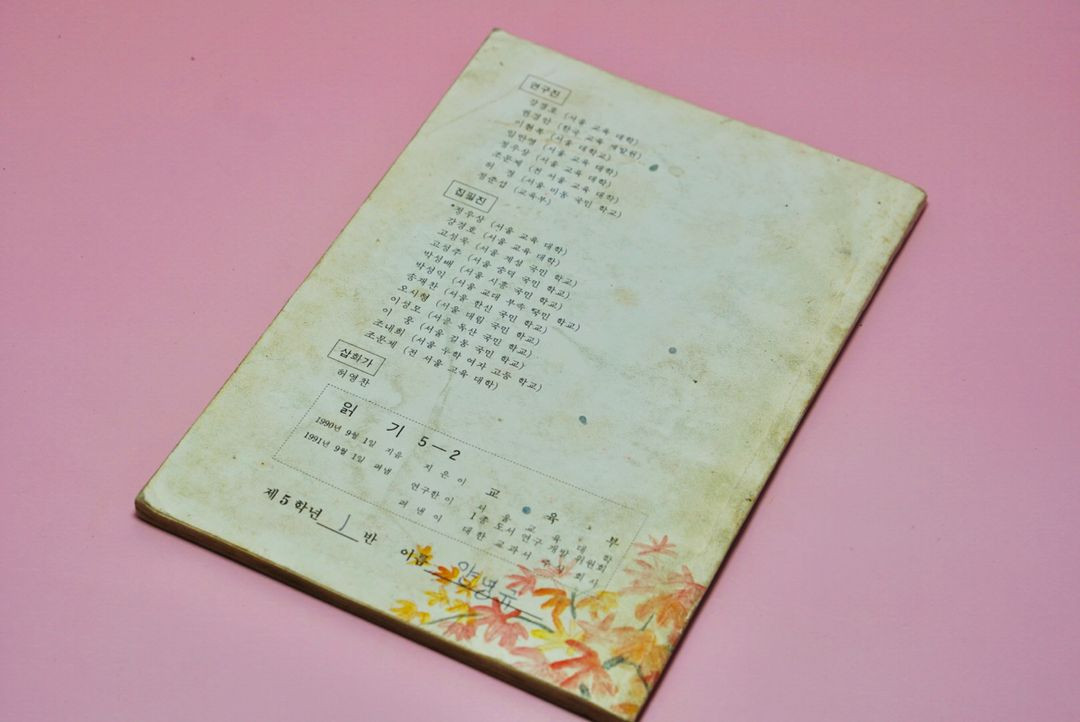 연구진
강경호 (서울 교육 대학)
(한국 교육 개발원)
이현복 (서울 대학교)
임만영 (서울 교육 대학)
정우상 (서울 교육 대학)
조문제 (전 서울 교육 대학)
허 경 (서울 미동 국민 학교)
정준섭 (교육부)
집필진
*정우상 (서울 교육 대학)
강경호 (서울 교육 대학)
고성욱 (서울 계성 국민 학교)
고성주 (서울 숭덕 국민 학교)
박성배 (서울 시흥 국민 학교)
박성익 (서울 교대 부속 국민 학교)
송재찬 (서울 한신 국민 학교)
오시형 (서울 대림 국민 학교)
이성모 (서울 독산 국민 학교)
이 웅 (서울 길동 국민 학교)
조내희 (서울 무학 여자 고등 학교)
조문제 (전 서울 교육 대학)
삽화가
허영찬
읽 기 5—2
1990년 9월 1일 지음
1991년 9월 1일 펴냄
지 은 이 교 육 부
연구한 이 서 울 교 육 대 학
1종 도서 연구 개발 위원회
펴 낸 이 대한 교과서 주식 회사
제 5 학년 1 반 이름